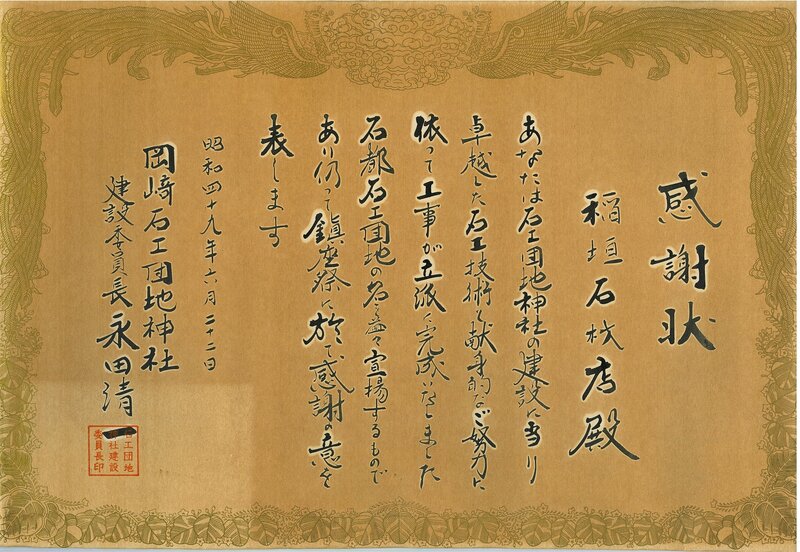 感謝状
稲垣石材店殿
あなたは石工団地神社の建設に当り
卓越した石工技術と献身的なご努力に
依って工事が立派に完成いたしました
石都石工団地の名を益々宣揚するもので
あり仍って鎮座祭に於て感謝の意を
表します
昭和四十九年六月二十二日
岡崎石工団地神社
建設委員長永田清一
工団地
社建設
委員長印